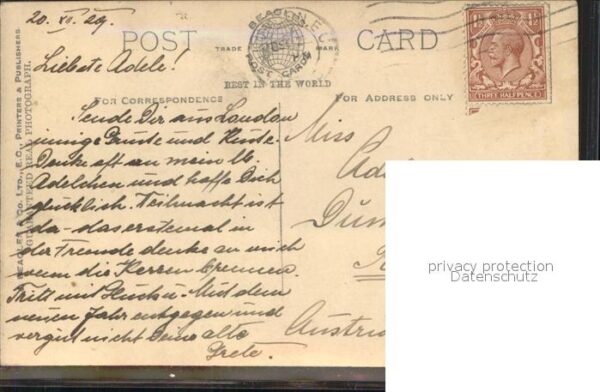 20. XII. 29.
POST CARD
BEAGLES
TRADE MARK
POST CARDS
BEST IN THE WORLD
FOR CORRESPONDENCE
FOR ADDRESS ONLY
BEAGLES & CO. LTD., E.C., PRINTERS & PUBLISHERS.
GUARANTEED REAL PHOTOGRAPH.
THREE HALFPENCE
Liebste Adele!
Sende Dir aus London
innige Grüsse und Küsse.
Denke oft an mein lb.
Adelchen und hoffe Dich
glücklich. Weihnacht ist
da - das erstemal in
der Fremde denke an mich
wenn die Kerzen brennen.
Tritt mit Glück u. Mut dem
neuen Jahr entgegen und
vergiß nicht Deine alte
Grete.
Miss
Ad
Austria
privacy protection
Datenschutz